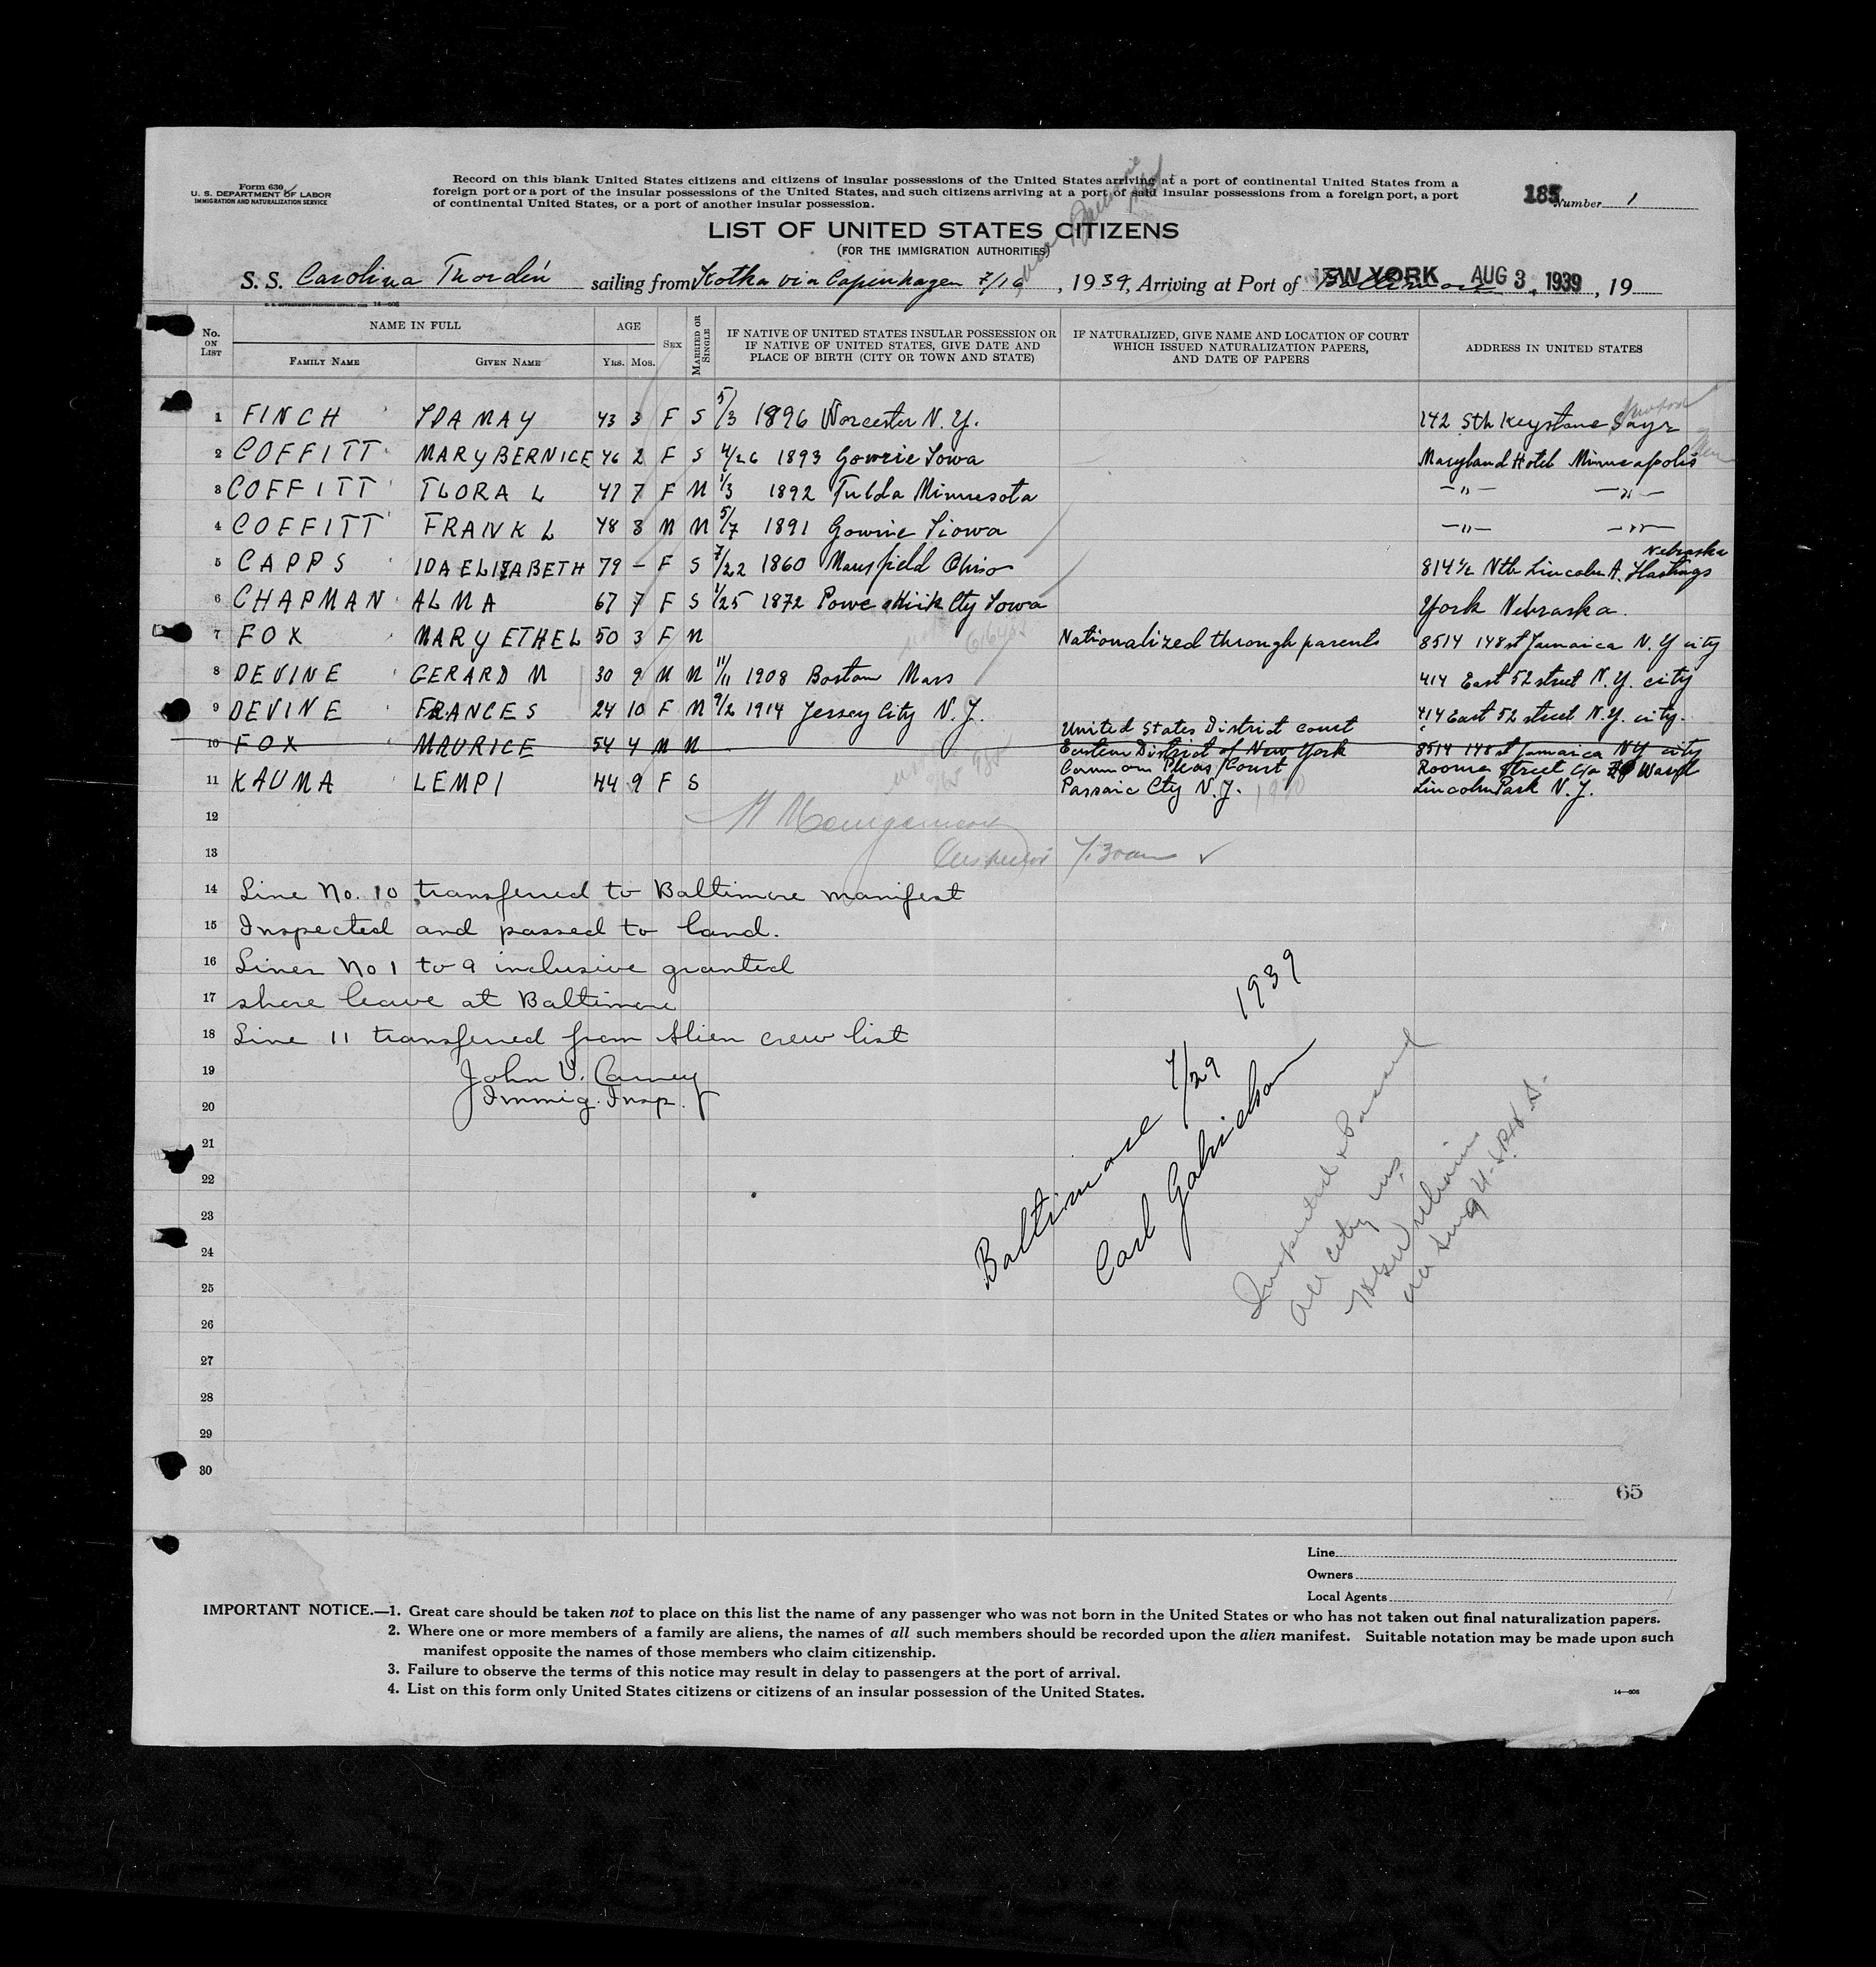 Form 630
U. S. DEPARTMENT OF LABOR
IMMIGRATION AND NATURALIZATION SERVICE
Record on this blank United States citizens and citizens of insular possessions of the United States arriving at a port of continental United States from a
foreign port or a port of the insular possessions of the United States, and such citizens arriving at a port of said insular possessions from a foreign port, a port
of continental United States, or a port of another insular possession.
185
Number 1
LIST OF UNITED STATES CITIZENS
(FOR THE IMMIGRATION AUTHORITIES)
S. S. Carolina Thordén sailing from Kotka via Capenhagen 7/16, 1939, Arriving at Port of NEW YORK AUG 3, 1939, 19
No. ON LIST
NAME IN FULL
FAMILY NAME
GIVEN NAME
AGE
YRS. MOS.
SEX
MARRIED OR SINGLE
IF NATIVE OF UNITED STATES INSULAR POSSESSION OR
IF NATIVE OF UNITED STATES, GIVE DATE AND
PLACE OF BIRTH (CITY OR TOWN AND STATE)
IF NATURALIZED, GIVE NAME AND LOCATION OF COURT
WHICH ISSUED NATURALIZATION PAPERS,
AND DATE OF PAPERS
ADDRESS IN UNITED STATES
1 FINCH IDA MAY 43 3 F S 5/3 1896 Worcester N. Y. 142 Sth Keystone Sayre
2 COFFITT MARY BERNICE 46 2 F S 4/26 1893 Gowrie Iowa Maryland Hotel Minneapolis
3 COFFITT FLORA L 47 7 F M 1/3 1892 Tulda Minnesota —"— —"—
4 COFFITT FRANK L 48 3 M M 5/7 1891 Gowrie Iowa —"— —"—
5 CAPPS IDA ELIZABETH 79 – F S 7/22 1860 Mansfield Ohio 814½ Nth Lincoln A. Hastings Nebraska
6 CHAPMAN ALMA 67 7 F S 1/25 1872 Powe Iowa York Nebraska.
7 FOX MARY ETHEL 50 3 F M Nationalized through parents 8514 148 st Jamaica N. Y city
8 DEVINE GERARD M 30 9 M M 11/11 1908 Boston Mass 414 East 52 street N. Y. city
9 DEVINE FRANCES 24 10 F M 9/2 1914 Jersey City N. J. 414 East 52 street N. Y. city.
10 FOX MAURICE 54 4 M M United States District court Eastern District of New York 8514 148 st Jamaica NY city
11 KAUMA LEMPI 44 9 F S Common Pleas Court Passaic Cty N. J. Street Lincoln Park N. J.
12
13
14 Line No. 10 transferred to Baltimore manifest
15 Inspected and passed to land.
16 Lines No 1 to 9 inclusive granted
17 shore leave at Baltimore
18 Line 11 transferred from Alien crew list
19 John V. Carney
20 Immig. Insp.
21
22
23
24
25
26
27
28
29
30
Baltimore 7/29 1939
Carl Gabrielson
Inspected & Passed
65
Line
Owners
Local Agents
IMPORTANT NOTICE.—1. Great care should be taken not to place on this list the name of any passenger who was not born in the United States or who has not taken out final naturalization papers.
2. Where one or more members of a family are aliens, the names of all such members should be recorded upon the alien manifest. Suitable notation may be made upon such
manifest opposite the names of those members who claim citizenship.
3. Failure to observe the terms of this notice may result in delay to passengers at the port of arrival.
4. List on this form only United States citizens or citizens of an insular possession of the United States.